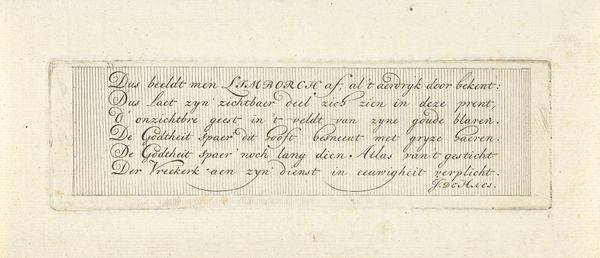 Dus beeldt men LIMBORCH af; al't aerdryk door bekent:
Dus laet zyn zichtbaer deel zich zien in deze prent,
d'onzichtbre geest in't veldt van zyne goude blaren.
De Godtheit spaer dit hooft besneeut met gryze haeren.
De Godtheit spaer noch lang dien Atlas van't gesticht
Der Vreekerk aen zyn' dienst in eeuwigheit verplicht.
J. DE HAES.